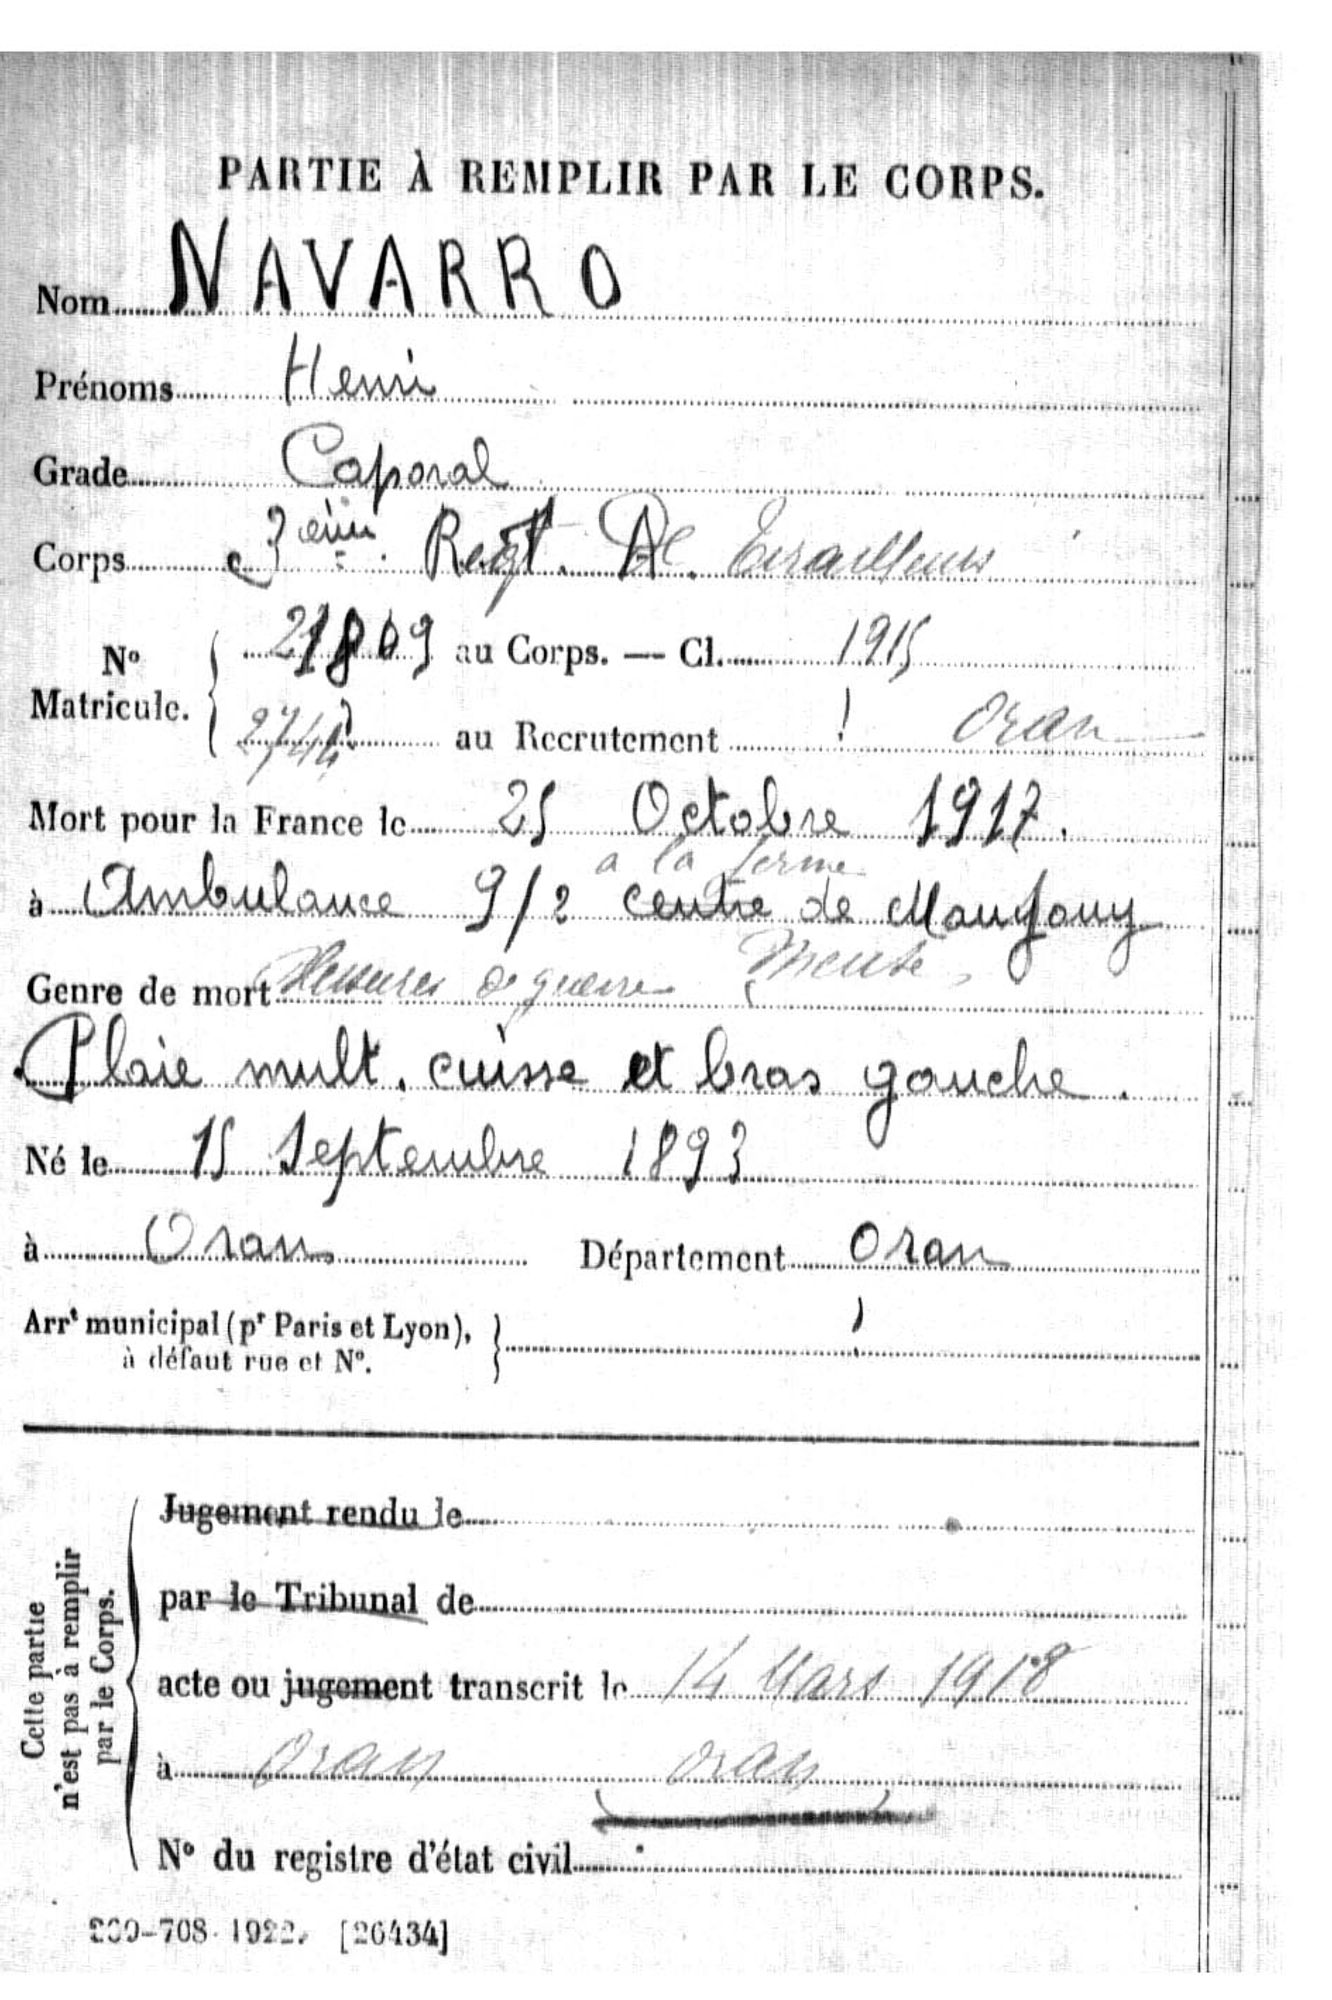 PARTIE À REMPLIR PAR LE CORPS.
Nom NAVARRO
Prénoms Henri
Grade Caporal
Corps 3ème Regt. de Tirailleurs
No Matricule. 21809 au Corps. — Cl. 1915
2744 au Recrutement Oran
Mort pour la France le 25 Octobre 1917.
a la ferme
à Ambulance 9/2 centre de Maujouy
Meuse
Genre de mort Blessures de guerre
Plaie mult. cuisse et bras gauche.
Né le 15 Septembre 1893
à Oran Département Oran
Arrt municipal (pr Paris et Lyon),
à défaut rue et No.
Cette partie
n'est pas à remplir
par le Corps.
Jugement rendu le
par le Tribunal de
acte ou jugement transcrit le 14 Mars 1918
à Oran Oran
No du registre d'état civil
-708-1922. [26434]